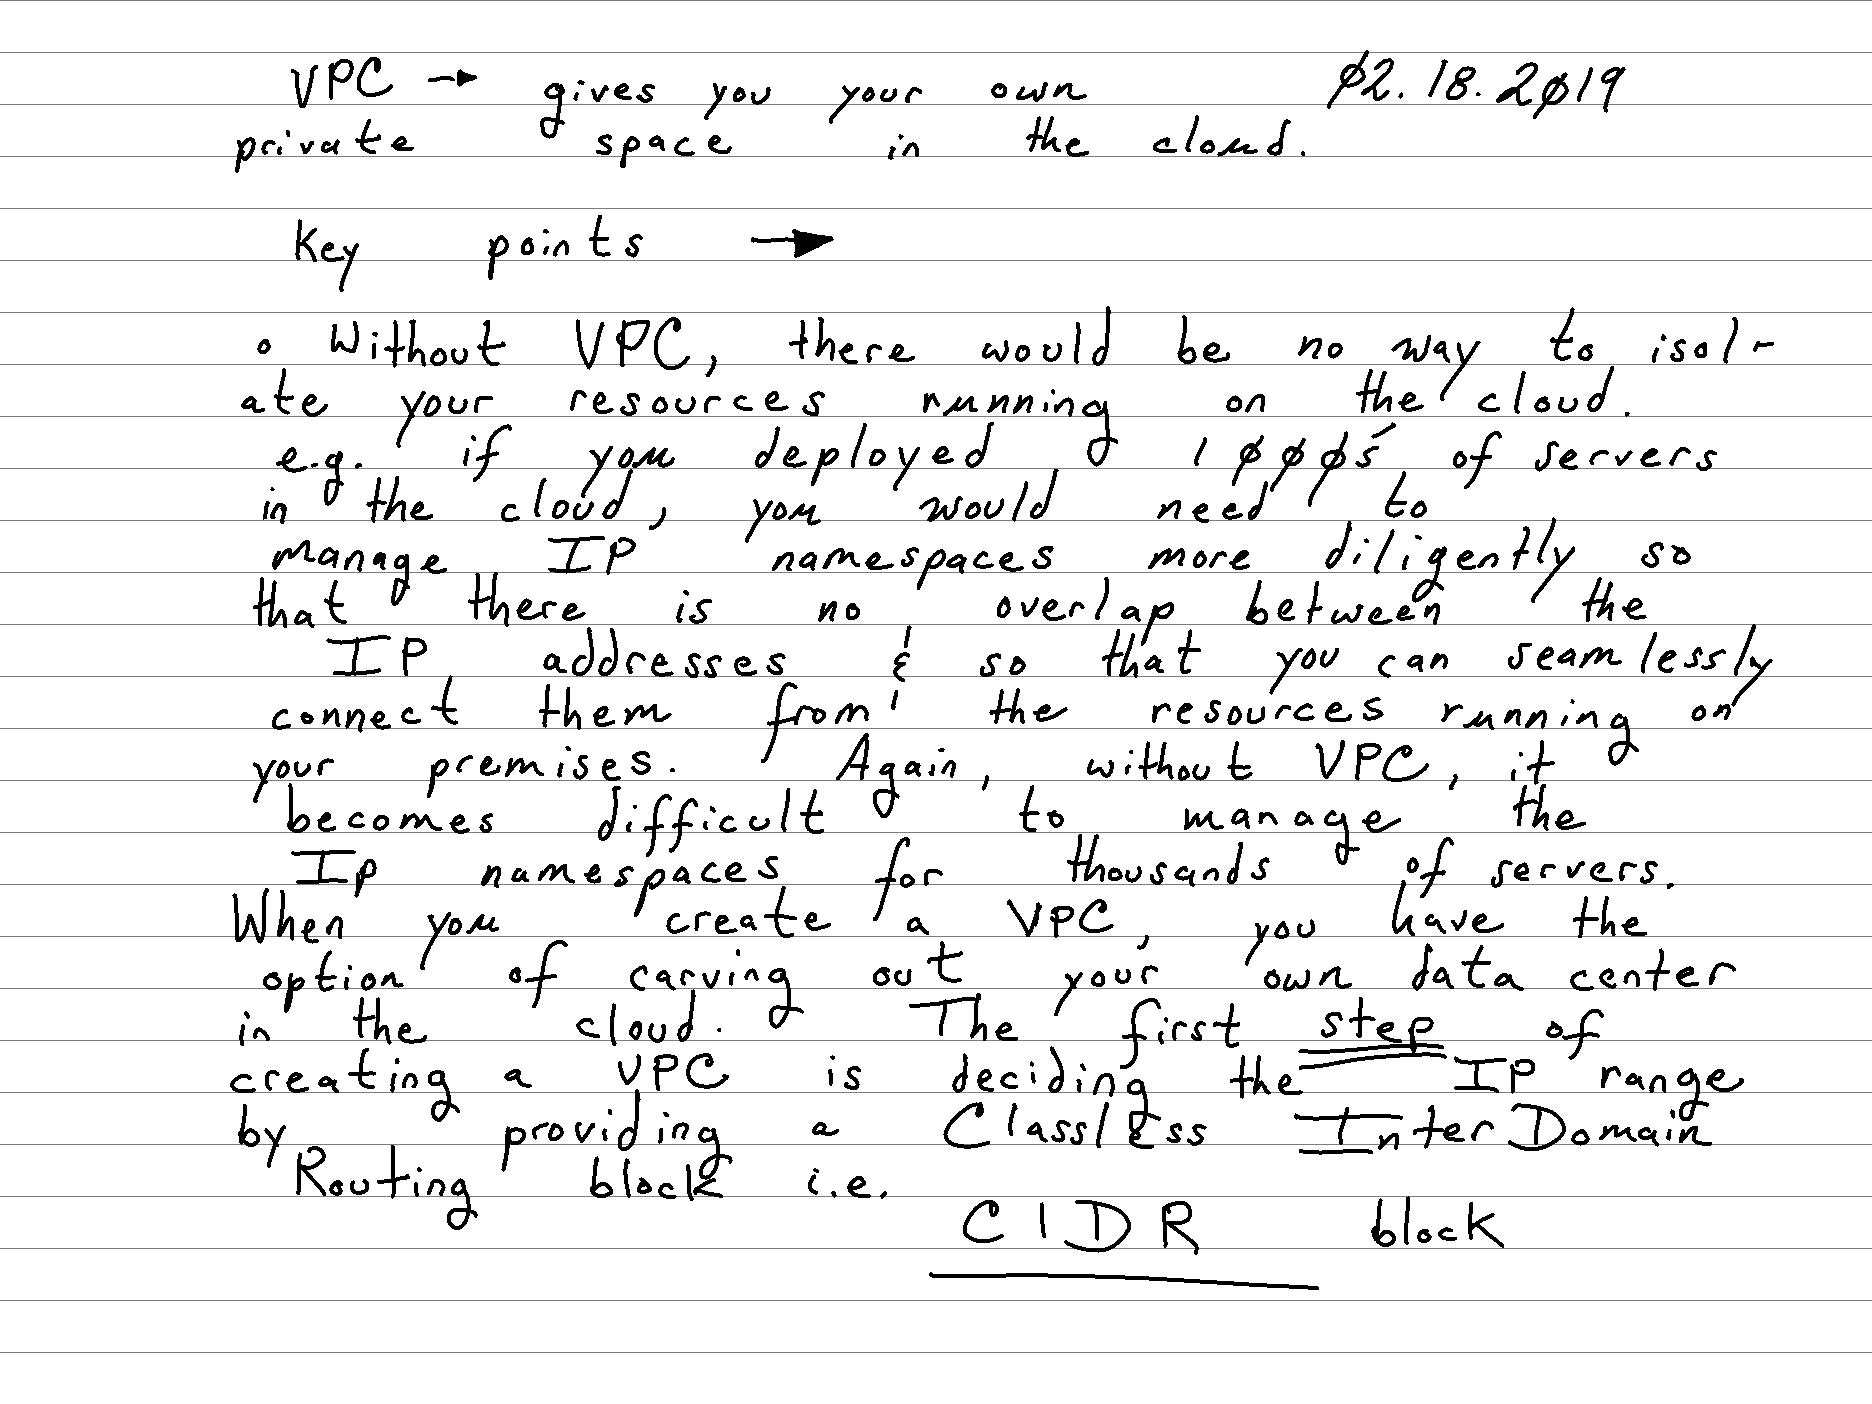 VPC → gives you your own 02.18.2019
private space in the cloud.
Key points →
o Without VPC, there would be no way to isol-
ate your resources running on the cloud.
e.g. if you deployed 1000's of servers
in the cloud, you would need to
manage IP namespaces more diligently so
that there is no overlap between the
IP addresses & so that you can seamlessly
connect them from the resources running on
your premises. Again, without VPC, it
becomes difficult to manage the
Ip namespaces for thousands of servers.
When you create a VPC, you have the
option of carving out your own data center
in the cloud. The first step of
creating a VPC is deciding the IP range
by providing a Classless InterDomain
Routing block i.e.
CIDR block